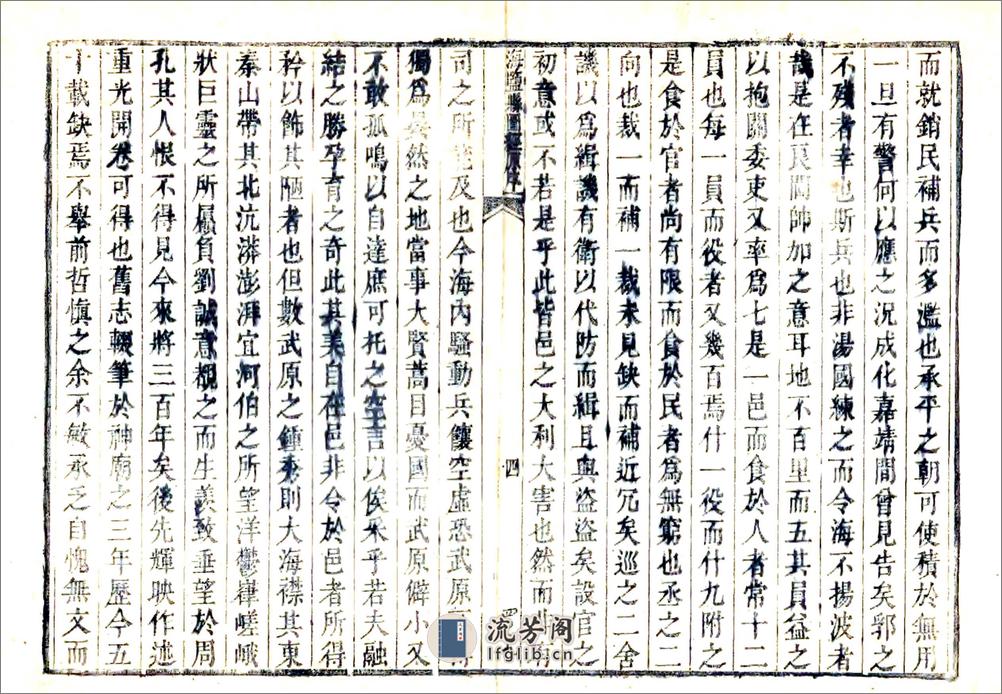 而就銷民補兵而多濫也承平之朝可使積於無用
一旦有警何以應之況成化嘉靖間曾見告矣郭之
不殘者幸也斯兵也非湯國練之而令海不揚波者
哉是在良閫帥加之意耳地不百里而五其員益之
以抱關委吏又率爲七是一邑而食於人者常十二
員也每一員而役者又幾百焉什一役而什九附之
是食於官者尚有限而食於民者爲無窮也丞之二
向也裁一而補一裁未見缺而補近冗矣巡之二舍
譏以爲緝譏有衛以代防而緝且與盜盜矣設官之
初意或不若是乎此皆邑之大利大害也然而
海鹽縣圖經原序
四
司之所 及也今海內騷動兵饟空虛恐武原
獨爲晏然之地當事大賢蒿目憂國而武原僻小又
不敢孤鳴以自達庶可托之空言以俟采乎若夫融
結之勝孕育之奇此其美自在邑非令於邑者所得
矜以飾其陋者也但數武原之鍾秀則大海襟其東
秦山帶其北沆漭澎湃宜河伯之所望洋鬱嵂嵯峨
狀巨靈之所屭負劉誠意覩之而生羨致垂望於周
孔其人恨不得見今來將三百年矣後先輝映作述
重光開卷可得也舊志輟筆於神廟之三年歷今五
十載缺焉不舉前哲慎之余不敏承乏自愧無文而
流芳阁
lfglib.cn